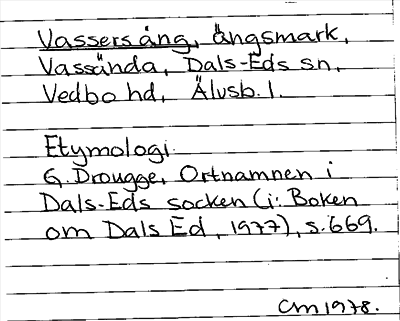 Vassersäng, ängsmark,
Vassända, Dals-Eds sn,
Vedbo hd, Älvsb. l.
Etymologi
G. Drougge, Ortnamnen i
Dals-Eds socken (i: Boken
om Dals Ed, 1977), s. 669.
CM 1978.